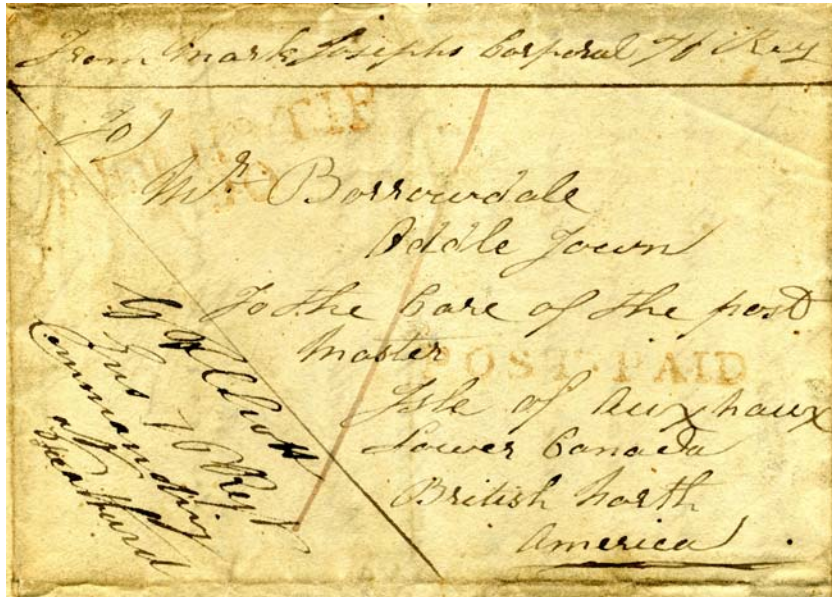 From Mark Josephs Corporal 76 Reg
To
Mr Borrowdale
Oddle Town
To the Care of the post
Master
POST-PAID
Isle of aux haux
Lower Canada
British North
America
Ens 76 Regt
Commanding
at